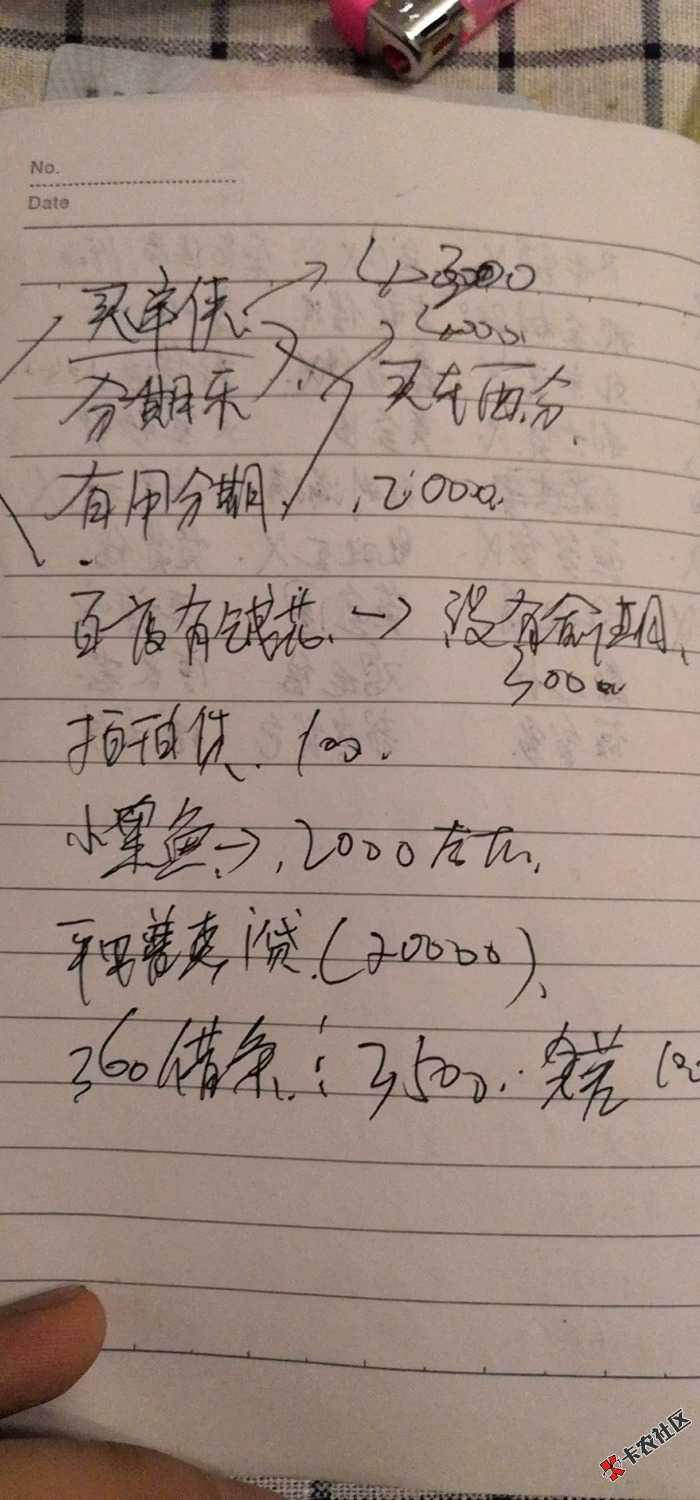 No.
Date
买单侠 3000
分期乐 买东西分
有用分期 2000
百度有钱花 → 没有合诈期
3000
拍拍贷 100
小黑鱼 → 2000左右
平安普惠 i贷 (20000)
360借条: 3500. 还差
卡农社区